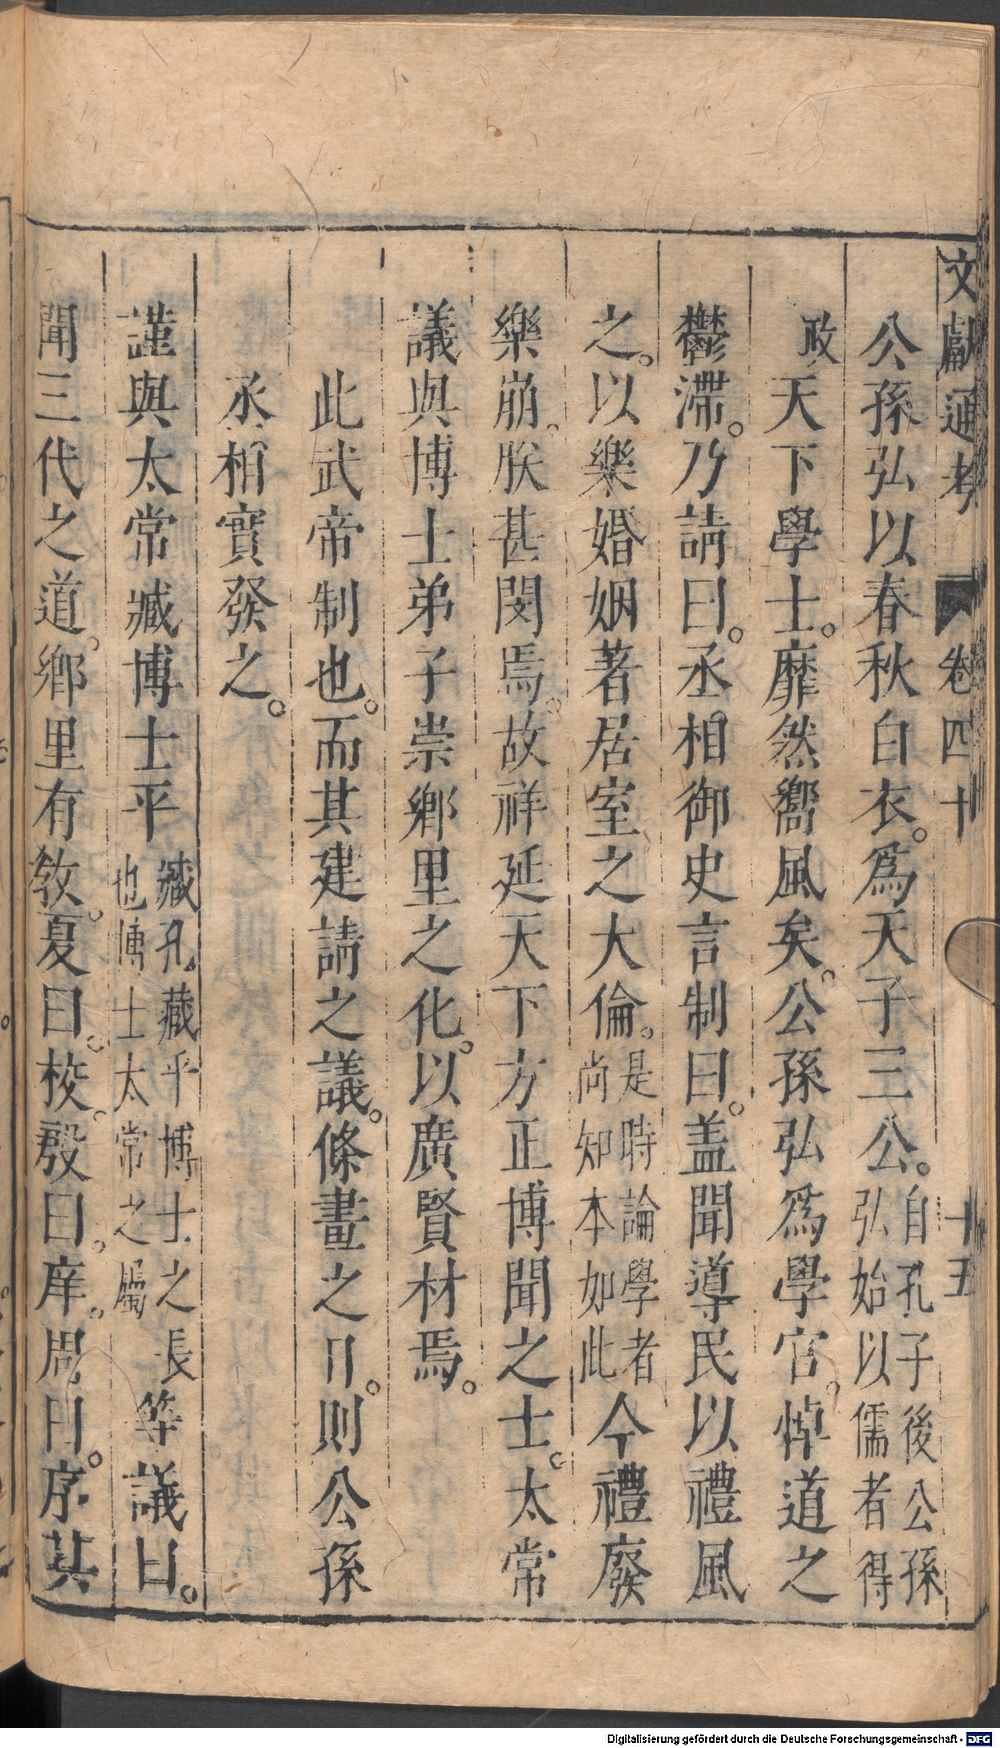 文獻通考 卷四十 十五
公孫弘以春秋白衣。爲天子三公。自孔子後公孫弘始以儒者得
政天下學士。靡然嚮風矣。公孫弘爲學官。悼道之
鬱滯。乃請曰。丞相御史言制曰。盖聞導民以禮風
之。以樂婚姻著居室之大倫。是時論學者尚知本如此今禮廢
樂崩。朕甚閔焉。故詳延天下方正博聞之士。太常
議與博士弟子崇鄉里之化。以廣賢材焉。
此武帝制也。而其建請之議。條畫之目。則公孫
丞相實發之。
謹與太常臧博士平臧孔臧平博士之長也博士太常之屬等議曰。
聞三代之道。鄉里有敎。夏曰。校。殷曰。庠。周曰。序其
Digitalisierung gefördert durch die Deutsche Forschungsgemeinschaft - DFG